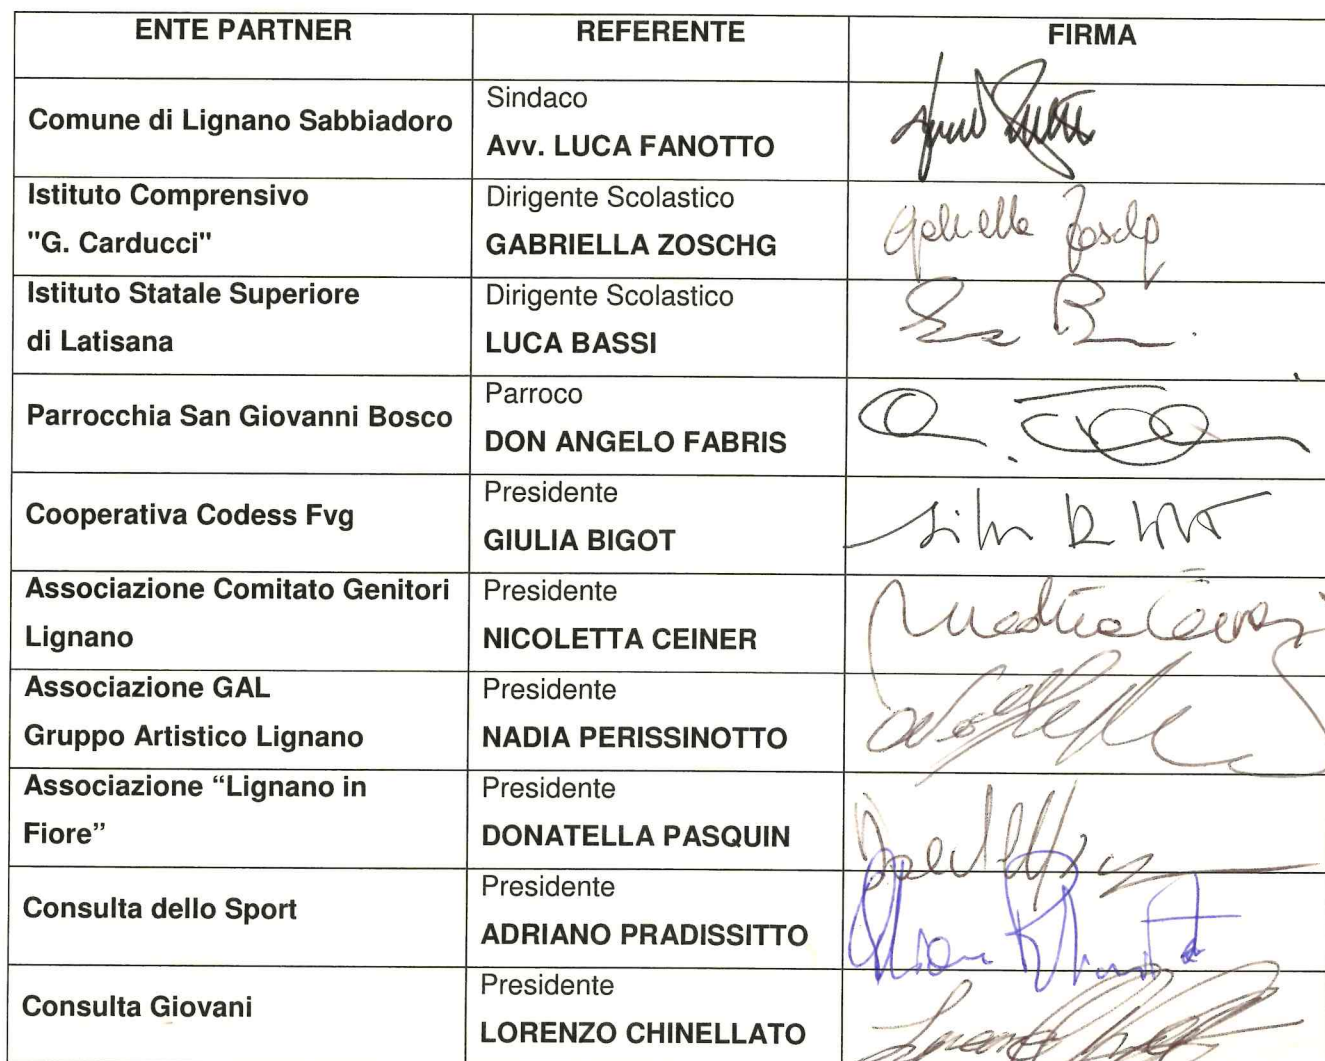 ENTE PARTNER REFERENTE FIRMA
Comune di Lignano Sabbiadoro
Sindaco
Avv. LUCA FANOTTO
Istituto Comprensivo
"G. Carducci"
Dirigente Scolastico
GABRIELLA ZOSCHG
Gabriella Zoschg
Istituto Statale Superiore
di Latisana
Dirigente Scolastico
LUCA BASSI
Parrocchia San Giovanni Bosco
Parroco
DON ANGELO FABRIS
Cooperativa Codess Fvg
Presidente
GIULIA BIGOT
Associazione Comitato Genitori
Lignano
Presidente
NICOLETTA CEINER
Associazione GAL
Gruppo Artistico Lignano
Presidente
NADIA PERISSINOTTO
Associazione “Lignano in
Fiore”
Presidente
DONATELLA PASQUIN
Consulta dello Sport
Presidente
ADRIANO PRADISSITTO
Consulta Giovani
Presidente
LORENZO CHINELLATO